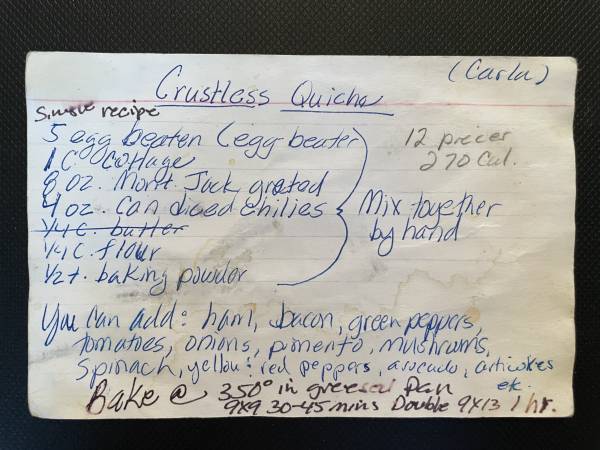 (Carla)
Crustless Quiche
Simple recipe
5 egg beaten (egg beater
1 C. Cottage
8 oz. Mont Jack grated
4 oz. Can diced chilies
1/4 C. butter
1/4 C. flour
1/2 t. baking powder
Mix together
by hand
12 pieces
270 Cal.
You can add: ham, bacon, green peppers,
tomatoes, onions, pimento, mushrooms,
Spinach, yellow: red peppers, avocado, articokes
ek.
Bake @ 350° in greesed Pan
9x9 30-45 mins Double 9x13 1 hr.